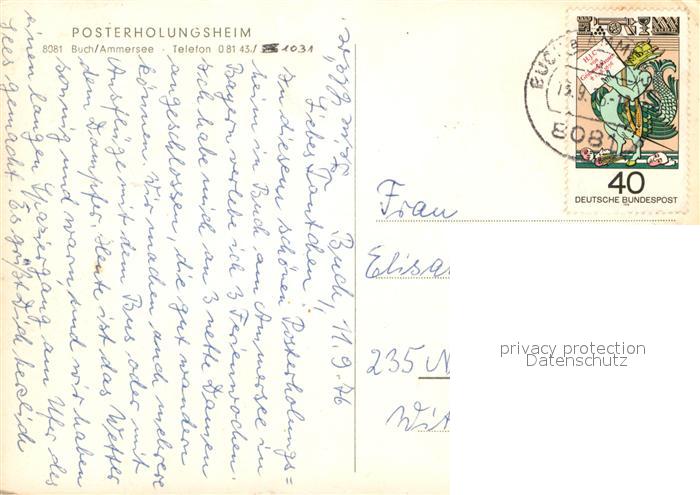 POSTERHOLUNGSHEIM
8081 Buch/Ammersee · Telefon 0 81 43/ 1031
Buch, 11.9.76
Liebes Tantchen!
In diesem schönen Posterholungs=
heim in Buch am Ammersee in
Bayern verlebe ich 3 Ferienwochen.
Ich habe mich an 3 nette Damen
angeschlossen, die gut wandern
können. Wir machen auch mehrere
Ausflüge mit dem Bus oder mit
dem Dampfer. Heute ist das Wetter
sonnig und warm, und wir haben
einen langen Spaziergang am Ufer des
Sees gemacht. Es grüßt Dich herzlich
Frau
Elisa
235 N
Wit
8081
40
DEUTSCHE BUNDESPOST
privacy protection
Datenschutz